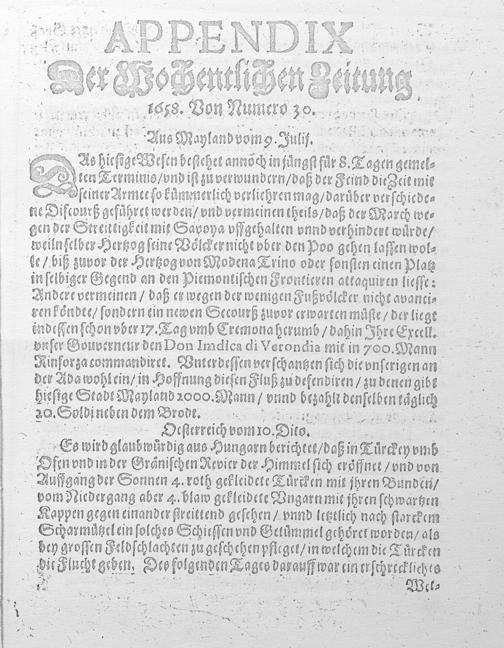 APPENDIX
Der Wochentlichen Zeitung
1658. Von Numero 30.
Aus Mayland vom 9. Julij.
DAs hiesige Wesen bestehet annoch in jüngst für 8. Tagen gemel-
ten Terminis/ und ist zu verwundern/ daß der Feind die Zeit mit
seiner Armee so kümmerlich verliehren mag/ darüber verschiede-
ne Discourß geführet werden/ vnd vermeinen theils/ daß der March we-
gen der Streittigkeit mit Savoya vffgehalten vnnd verhindert würde/
weiln selber Hertzog seine Völcker nicht vber den Poo gehen lassen wol-
le/ biß zuvor der Hertzog von Modena Trino oder sonsten einen Platz
in selbiger Gegend an den Piemontischen Frontieren attaquiren liesse:
Andere vermeinen/ daß er wegen der wenigen Fußvölcker nicht avanci-
ren köndte/ sondern ein newen Secourß zuvor erwarten müste/ der liegt
indessen schon vber 17. Tag vmb Cremona herumb/ dahin Ihre Excell.
vnser Gouverneur den Don Imdica di Verondia mit in 700. Mann
Rinforza commandiret. Vnterdessen verschantzen sich die vnserigen an
der Ada wohl ein/ in Hoffnung diesen Fluß zu defendiren/ zu denen gibt
hiesige Stadt Mayland 2000. Mann/ vnnd bezahlt denselben täglich
20. Soldi neben dem Brodt.
Oesterreich vom 10. Dito.
Es wird glaubwürdig aus Hungarn berichtet/ daß in Türckey vmb
Ofen vnd in der Gränischen Revier der Himmel sich eröffnet/ vnd von
Auffgang der Sonnen 4. roth gekleidete Türcken mit jhren Bunden/
vom Niedergang aber 4. blaw gekleidete Vngarn mit jhren schwartzen
Kappen gegen einander streittend gesehen/ vnnd letztlich nach starckem
Scharmützel ein solches Schiessen vnd Getümmel gehöret worden/ als
bey grossen Feldschlachten zu geschehen pfleget/ in welchem die Türcken
die Flucht geben. Des folgenden Tages darauff war ein erschreckliches
Wet-